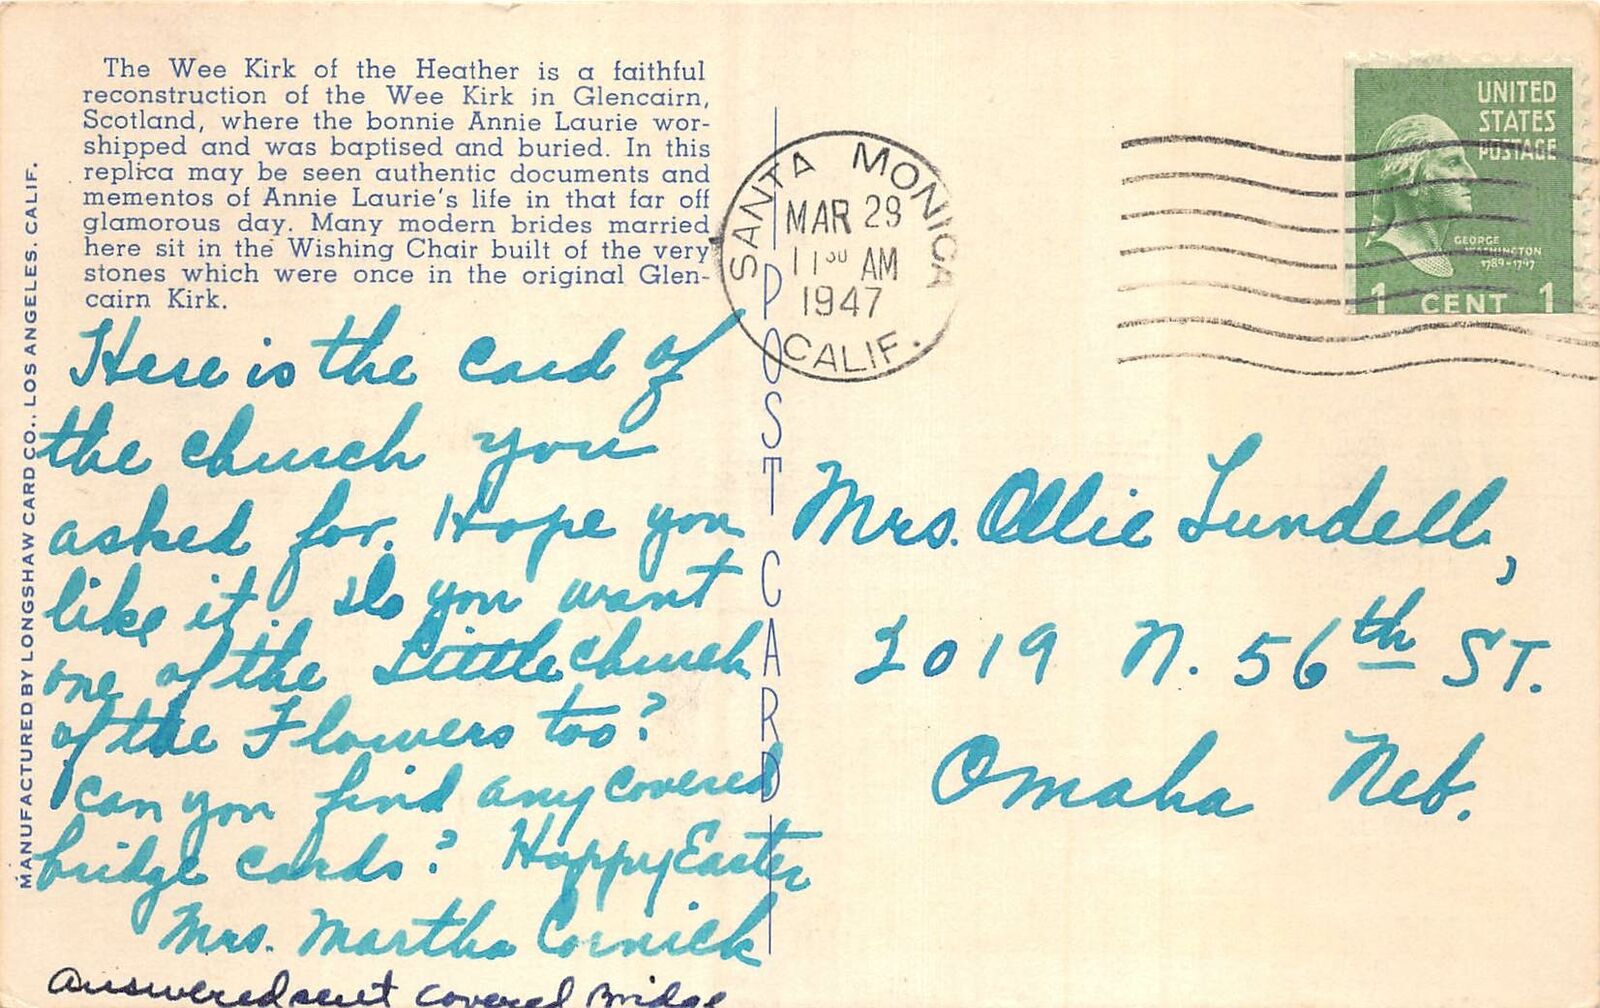 The Wee Kirk of the Heather is a faithful
reconstruction of the Wee Kirk in Glencairn,
Scotland, where the bonnie Annie Laurie wor-
shipped and was baptised and buried. In this
replica may be seen authentic documents and
mementos of Annie Laurie's life in that far off
glamorous day. Many modern brides married
here sit in the Wishing Chair built of the very
stones which were once in the original Glen-
cairn Kirk.
MANUFACTURED BY LONGSHAW CARD CO., LOS ANGELES, CALIF.
Here is the card of
the church you
asked for. Hope you
like it. Do you want
one of the Little church
of the Flowers too?
Can you find any covered
bridge cards? Happy Easter
Mrs. Martha Cornick
Answered sent covered Bridge
POST CARD
SANTA MONICA
MAR 29
11 30 AM
1947
CALIF.
UNITED
STATES
POSTAGE
GEORGE
WASHINGTON
1789-1797
1 CENT 1
Mrs. Ollie Lundell,
2019 N. 56th ST.
Omaha Neb.